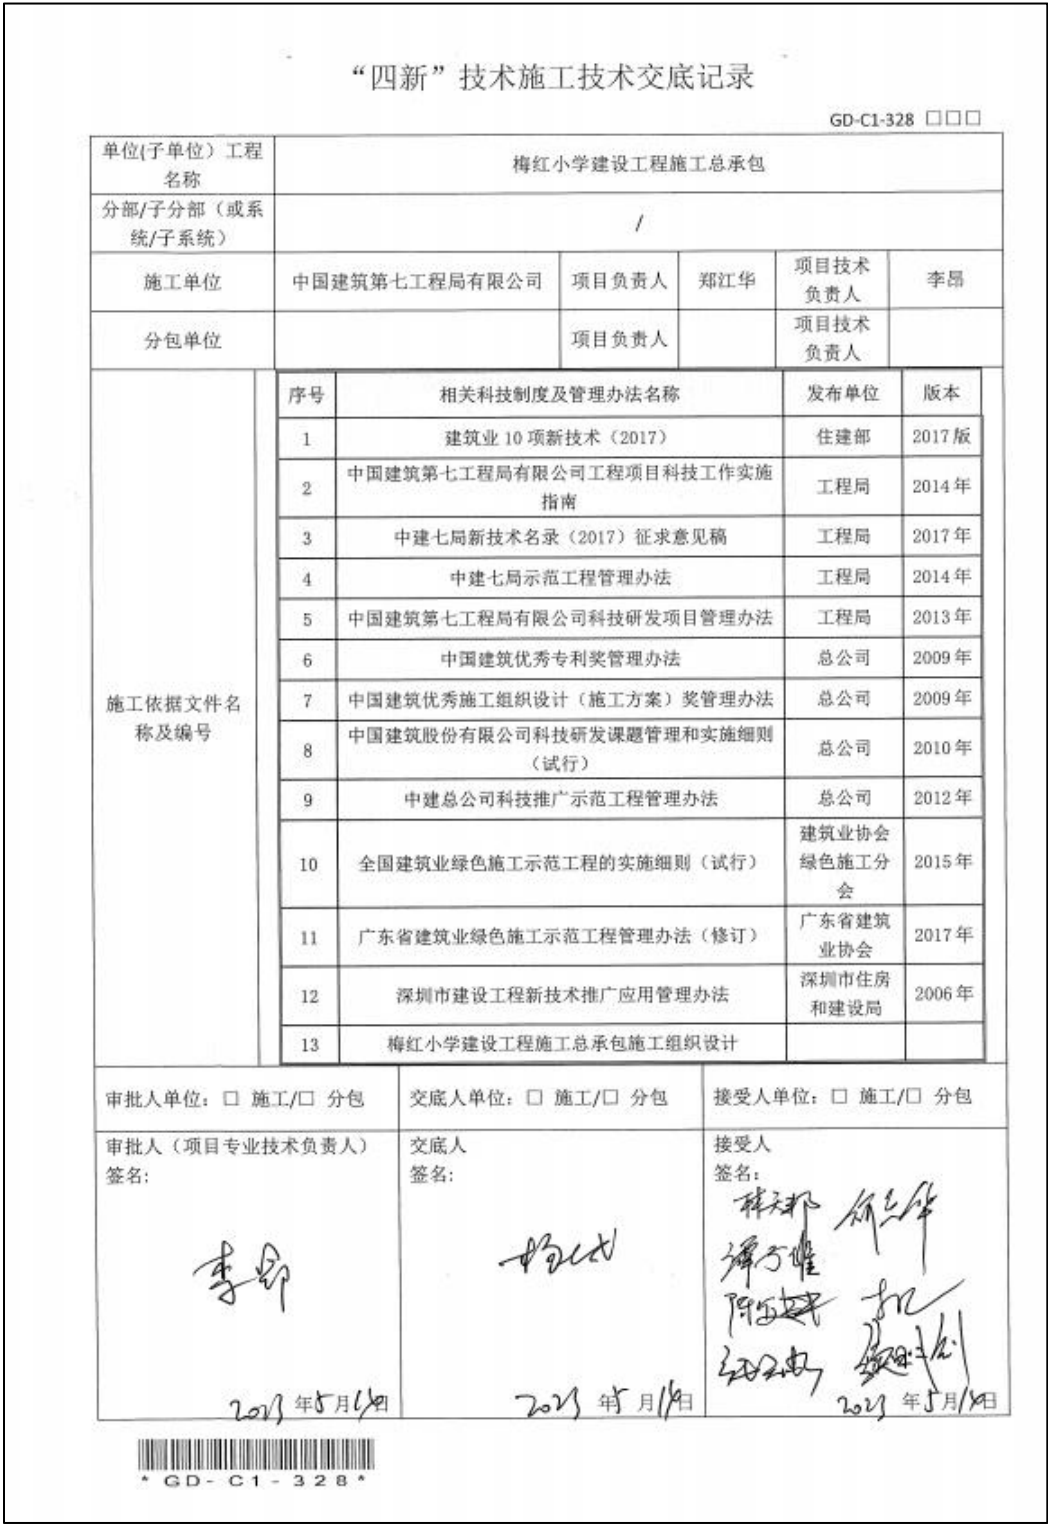 “四新”技术施工技术交底记录
GD-C1-328 □□□
单位(子单位)工程
名称
梅红小学建设工程施工总承包
分部/子分部(或系
统/子系统)
/
施工单位 中国建筑第七工程局有限公司 项目负责人 郑江华 项目技术
负责人 李昂
分包单位 项目负责人 项目技术
负责人
施工依据文件名
称及编号
序号 相关科技制度及管理办法名称 发布单位 版本
1 建筑业 10 项新技术(2017) 住建部 2017版
2 中国建筑第七工程局有限公司工程项目科技工作实施
指南 工程局 2014年
3 中建七局新技术名录(2017)征求意见稿 工程局 2017年
4 中建七局示范工程管理办法 工程局 2014年
5 中国建筑第七工程局有限公司科技研发项目管理办法 工程局 2013年
6 中国建筑优秀专利奖管理办法 总公司 2009年
7 中国建筑优秀施工组织设计(施工方案)奖管理办法 总公司 2009年
8 中国建筑股份有限公司科技研发课题管理和实施细则
(试行) 总公司 2010年
9 中建总公司科技推广示范工程管理办法 总公司 2012年
10 全国建筑业绿色施工示范工程的实施细则(试行) 建筑业协会
绿色施工分
会 2015年
11 广东省建筑业绿色施工示范工程管理办法(修订) 广东省建筑
业协会 2017年
12 深圳市建设工程新技术推广应用管理办法 深圳市住房
和建设局 2006年
13 梅红小学建设工程施工总承包施工组织设计
审批人单位:□ 施工/□ 分包 交底人单位:□ 施工/□ 分包 接受人单位:□ 施工/□ 分包
审批人(项目专业技术负责人)
签名:
李昂
2023年5月14日
交底人
签名:
2023年5月14日
接受人
签名:
2023年5月14日
*GD-C1-328*